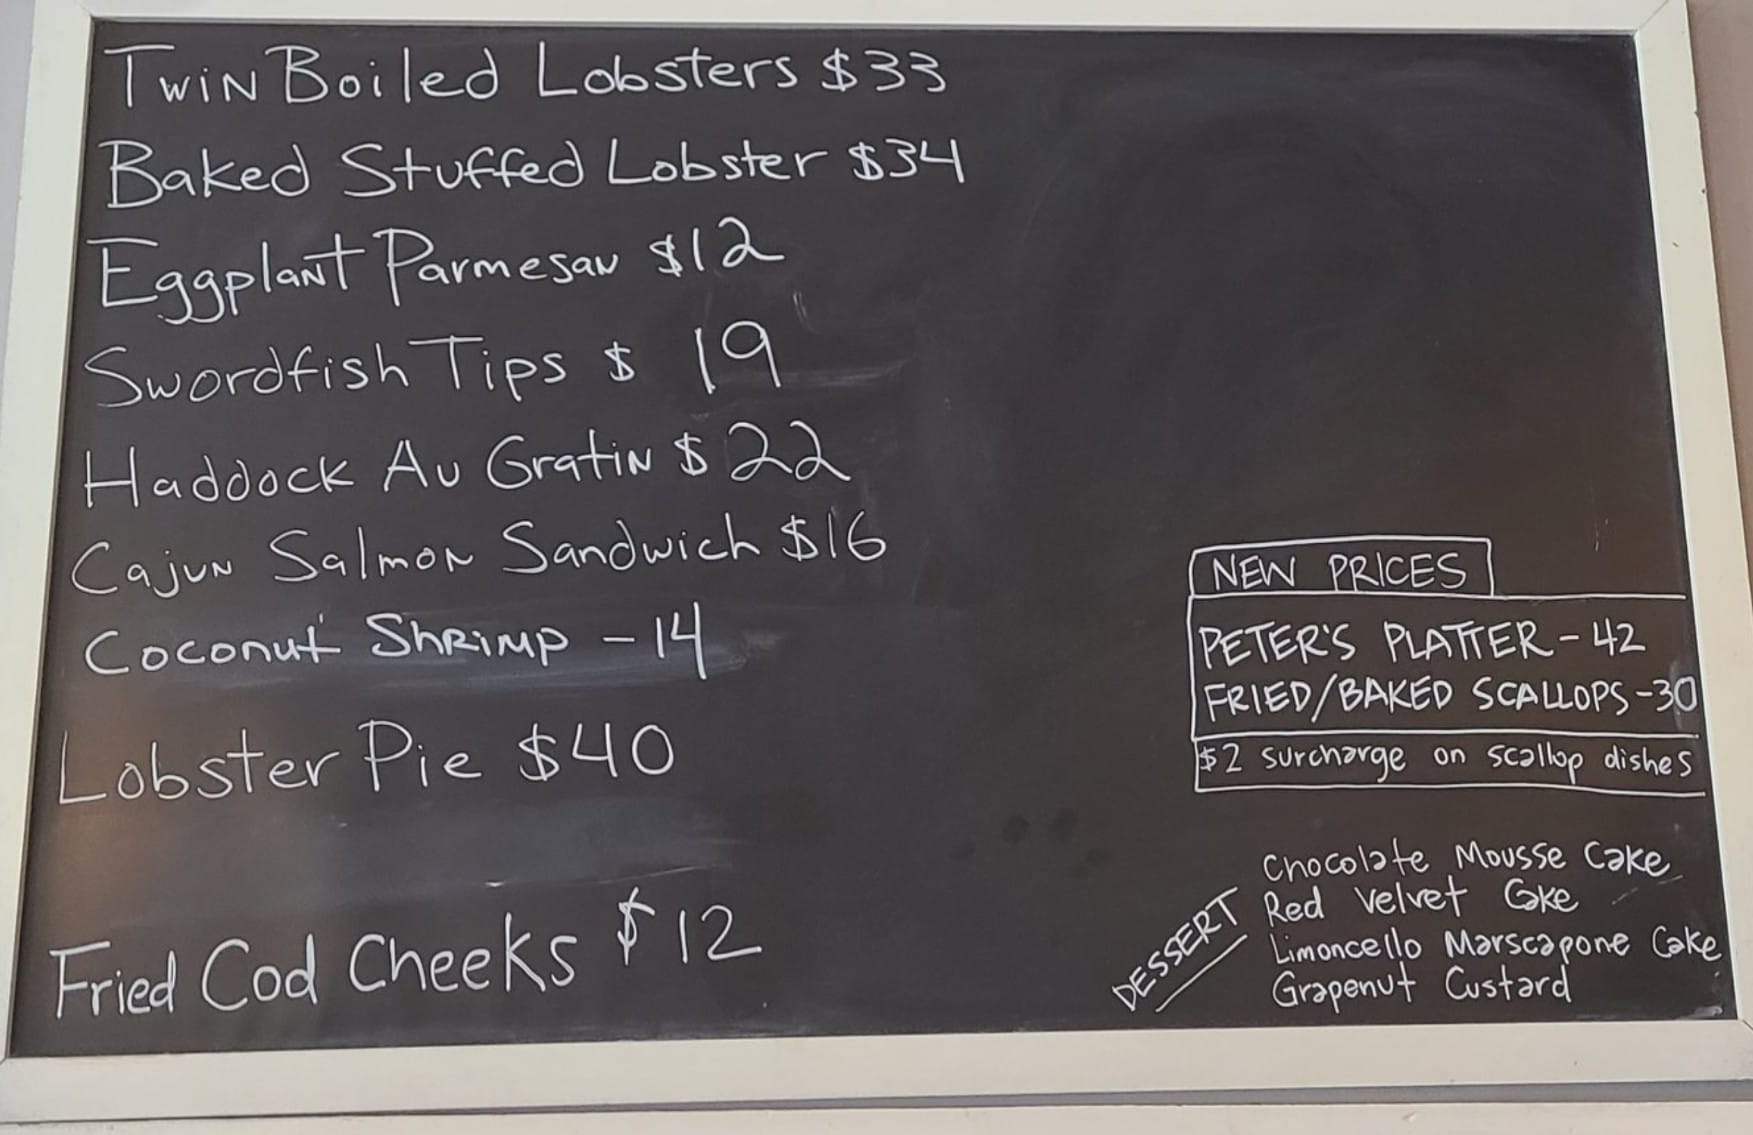 Twin Boiled Lobsters $33
Baked Stuffed Lobster $34
Eggplant Parmesan $12
Swordfish Tips $ 19
Haddock Au Gratin $22
Cajun Salmon Sandwich $16
Coconut Shrimp - 14
Lobster Pie $40
Fried Cod Cheeks $12
NEW PRICES
PETER'S PLATTER - 42
FRIED/BAKED SCALLOPS - 30
$2 surcharge on scallop dishes
DESSERT
Chocolate Mousse Cake
Red Velvet Cake
Limoncello Marscapone Cake
Grapenut Custard